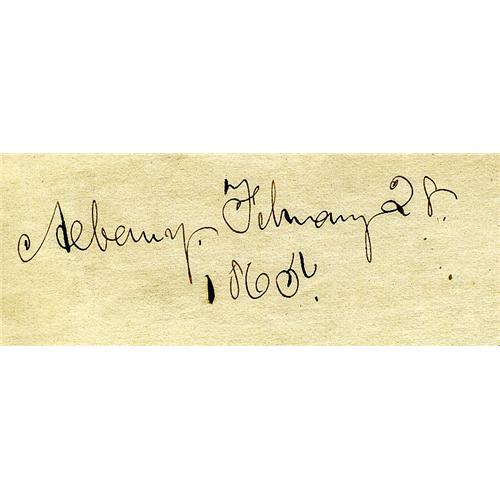 Albany. February 28.
1865.